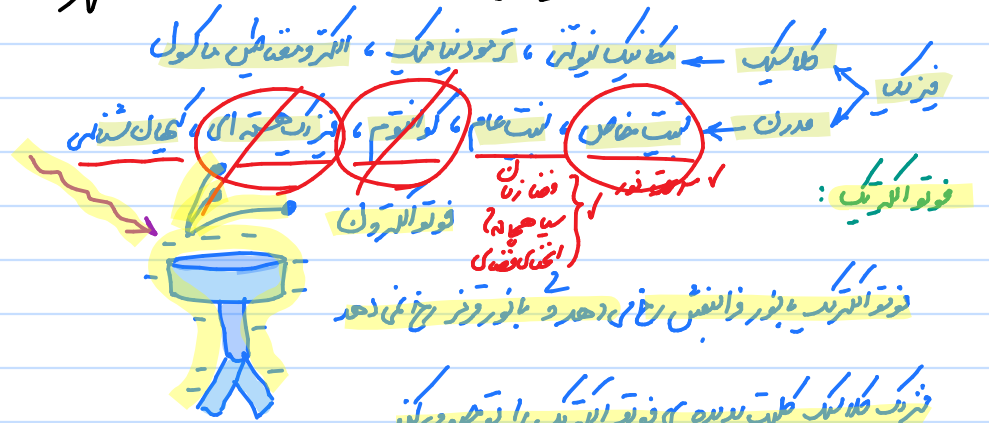 فیزیک
کلاسیک ← مکانیک نیوتنی ، ترمودینامیک ، الکترومغناطیس ماکسول
مدرن ← نسبیت خاص ، نسبیت عام ، کوانتوم ، فیزیک هسته ای ، کیهان شناسی
سرعت نور ✓
فضا زمان
سیاهچاله
انحنای فضا
✓
فوتوالکتریک :
فوتوالکترون
فوتوالکتریک با نور فرابنفش رخ می دهد و با نور قرمز رخ نمی دهد
2
فیزیک کلاسیک پدیده ی فوتوالکتریک را توجیه